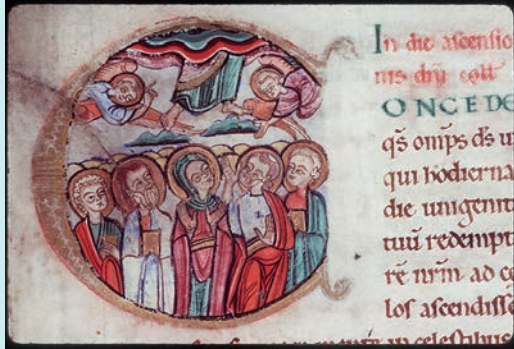 In die ascensio
nis dñi coll
ONCEDE
qs omps ds u
qui hodierna
die unigenit
tuū redempt
rē nrm ad ce
los ascendisse
in celestibus